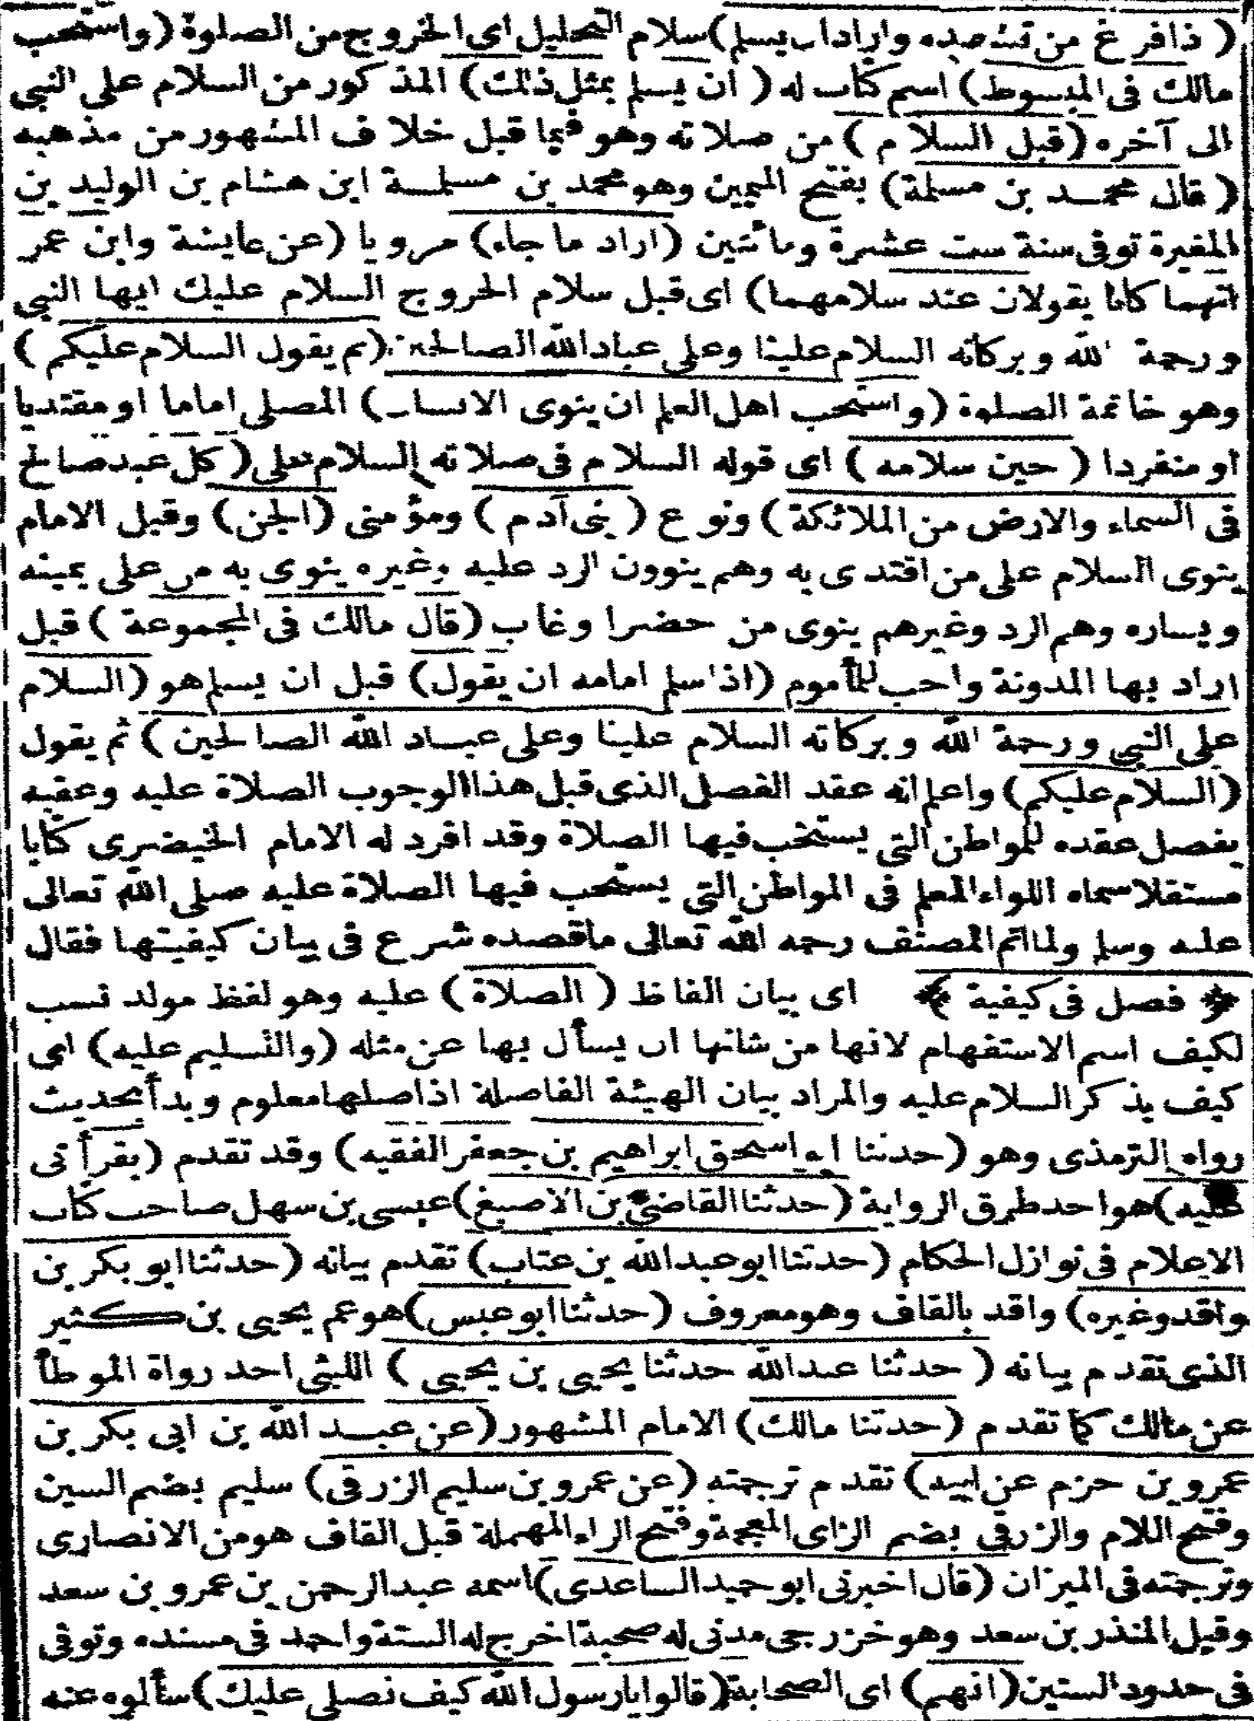 ( ذافرغ من تشهده واراد ان يسلم) سلام التحليل اى الخروج من الصلوة (واستحب
مالك فى المبسوط) اسم كتاب له ( ان يسلم بمثل ذلك) المذكور من السلام على النبى
الى آخره (قبل السلام ) من صلاته وهو فيما قبل خلاف المشهور من مذهبه
( قال محمد بن مسلمة) بفتح الميمين وهو محمد بن مسلمة ابن هشام بن الوليد بن
المغيرة توفى سنة ست عشرة ومائتين (اراد ما جاء) مرويا (عن عايشة وابن عمر
انهما كانا يقولان عند سلامهما) اى قبل سلام الخروج السلام عليك ايها النبى
ورحمة الله وبركاته السلام علينا وعلى عباد الله الصالحين (ثم يقول السلام عليكم )
وهو خاتمة الصلوة (واستحب اهل العلم ان ينوى الانسان) المصلى اماما او مقتديا
او منفردا ( حين سلامه ) اى قوله السلام فى صلاته السلام على (كل عبد صالح
فى السماء والارض من الملائكة ) ونوع ( بنى آدم ) ومؤمنى (الجن) وقيل الامام
ينوى السلام على من اقتدى به وهم ينوون الرد عليه وغيره ينوى به من على يمينه
ويساره وهم الرد وغيرهم ينوى من حضرا وغاب (قال مالك فى المجموعة ) قيل
اراد بها المدونة واحب للمأموم (اذا سلم امامه ان يقول) قبل ان يسلم هو (السلام
على النبى ورحمة الله وبركاته السلام علينا وعلى عباد الله الصالحين ) ثم يقول
(السلام عليكم) واعلم انه عقد الفصل الذى قبل هذا لوجوب الصلاة عليه وعقبه
بفصل عقده للمواطن التى يستحب فيها الصلاة وقد افرد له الامام الخيضرى كتابا
مستقلا سماه اللواء المعلم فى المواطن التى يستحب فيها الصلاة عليه صلى الله تعالى
عليه وسلم ولما اتم المصنف رحمه الله تعالى ماقصده شرع فى بيان كيفيتها فقال
﴿ فصل فى كيفية ﴾ اى بيان الفاظ ( الصلاة ) عليه وهو لفظ مولد نسب
لكيف اسم الاستفهام لانها من شانها ان يسأل بها عن مثله (والتسليم عليه) اى
كيف يذكر السلام عليه والمراد بيان الهيئة الفاصلة اذ اصلها معلوم وبدأ بحديث
رواه الترمذى وهو (حدثنا ابو اسحق ابراهيم بن جعفر الفقيه) وقد تقدم (بقرأتى
عليه) هو احد طرق الرواية (حدثنا القاضى بن الاصبغ) عيسى بن سهل صاحب كتاب
الاعلام فى نوازل الحكام (حدثنا ابو عبد الله بن عتاب) تقدم بيانه (حدثنا ابو بكر بن
واقد وغيره) واقد بالقاف وهو معروف (حدثنا ابو عيسى) هو عم يحيى بن كثير
الذى تقدم بيانه ( حدثنا عبد الله حدثنا يحيى بن يحيى ) الليثى احد رواة الموطأ
عن مالك كما تقدم (حدثنا مالك) الامام المشهور (عن عبد الله بن ابى بكر بن
عمرو بن حزم عن ابيه) تقدم ترجمته (عن عمرو بن سليم الزرقى) سليم بضم السين
وفتح اللام والزرقى بضم الزاى المعجمة وفتح الراء المهملة قبل القاف هو من الانصارى
وترجمته فى الميزان (قال اخبرنى ابو حميد الساعدى) اسمه عبد الرحمن بن عمرو بن سعد
وقيل المنذر بن سعد وهو خزرجى مدنى له صحبة اخرج له الستة واحمد فى مسنده وتوفى
فى حدود الستين (انهم) اى الصحابة (قالوا يارسول الله كيف نصلى عليك) سألوه عنه